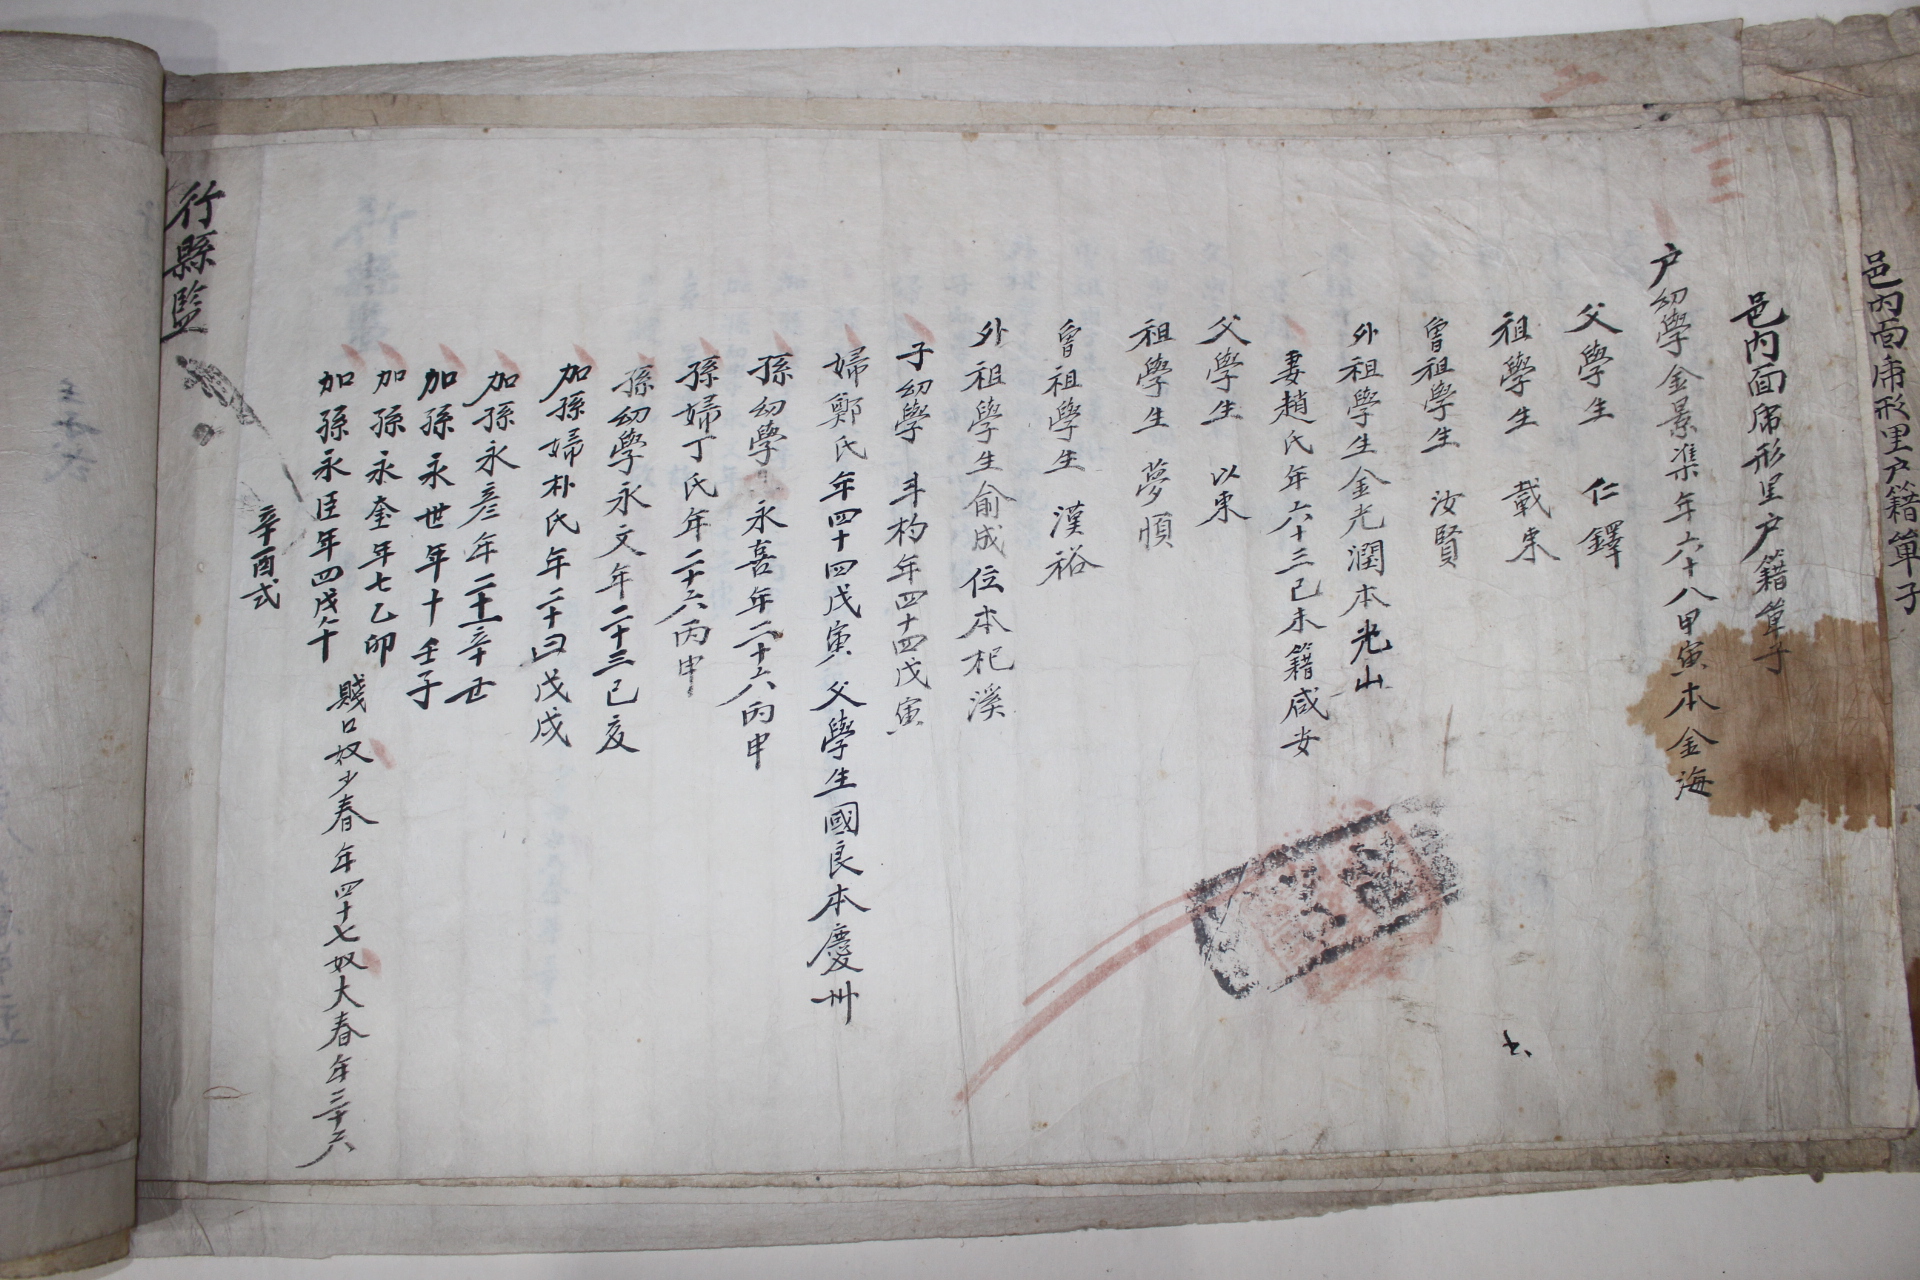 邑內面席形里戶籍單子
邑內面席形里戶籍單子
戶幼學金景集年六十八甲寅本金海
父學生 仁鐸
祖學生 載東
曾祖學生 汝賢
外祖學生金光潤本光山
妻趙氏年六十三己未籍咸安
父學生 以東
祖學生 夢順
曾祖學生 漢裕
外祖學生俞成位本杞溪
子幼學 斗杓年四十四戊寅
婦鄭氏年四十四戊寅 父學生國良本慶州
孫幼學 永喜年二十六丙申
孫婦丁氏年二十六丙申
孫幼學永文年二十三己亥
加孫婦朴氏年二十四戊戌
加孫永彦年二十一辛丑
加孫永世年十壬子
加孫永奎年七乙卯
加孫永臣年四戊午 賤口奴少春 年四十七奴大春年三十六
辛酉式
行縣監